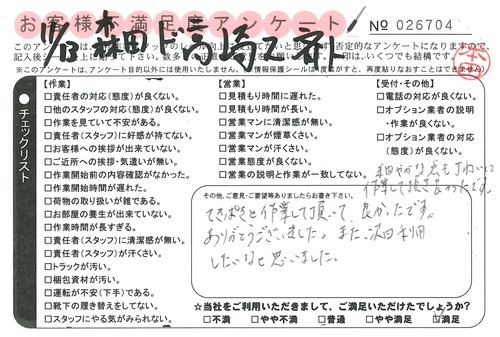 お客様不満足度アンケート
No 026704
11/13 森田ド 高崎 斉ト
※このアンケートは、アンケート目的以外には使用いたしません。
チェックリスト
【作業】
□責任者の対応(態度)が良くない。
□他のスタッフの対応(態度)が良くない。
□作業を見ていて不安がある。
□責任者(スタッフ)に好感が持てない。
□お客様への挨拶が出来ていない。
□ご近所への挨拶・気遣いが無い。
□作業開始前の内容確認がなかった。
□作業開始時間が遅れた。
□荷物の取り扱いが雑である。
□お部屋の養生が出来ていない。
□作業時間が長すぎる。
□責任者(スタッフ)に清潔感が無い。
□責任者(スタッフ)が汗くさい。
□トラックが汚い。
□梱包資材が汚い。
□運転が不安(下手)である。
□靴下の履き替えをしてない。
□スタッフにやる気がみられない。
【営業】
□見積もり時間に遅れた。
□見積もり時間が長い。
□営業マンに清潔感が無い。
□営業マンが煙草くさい。
□営業マンが汗くさい。
□営業態度が良くない。
□営業の説明と作業が一致してない。
【受付・その他】
□電話の対応が良くない。
□オプション業者の説明
・作業が良くない。
□オプション業者の対応
(態度)が良くない。
作業して頂き良かったです。
その他、ご意見・ご要望等ありましたらお書き下さい。
てきぱきと作業して頂いて、良かったです。
ありがとうございました。また、次回利用
したいなと思いました。
☆当社をご利用いただきまして、ご満足いただけたでしょうか?
□不満 □やや不満 □普通 □やや満足 ☑満足